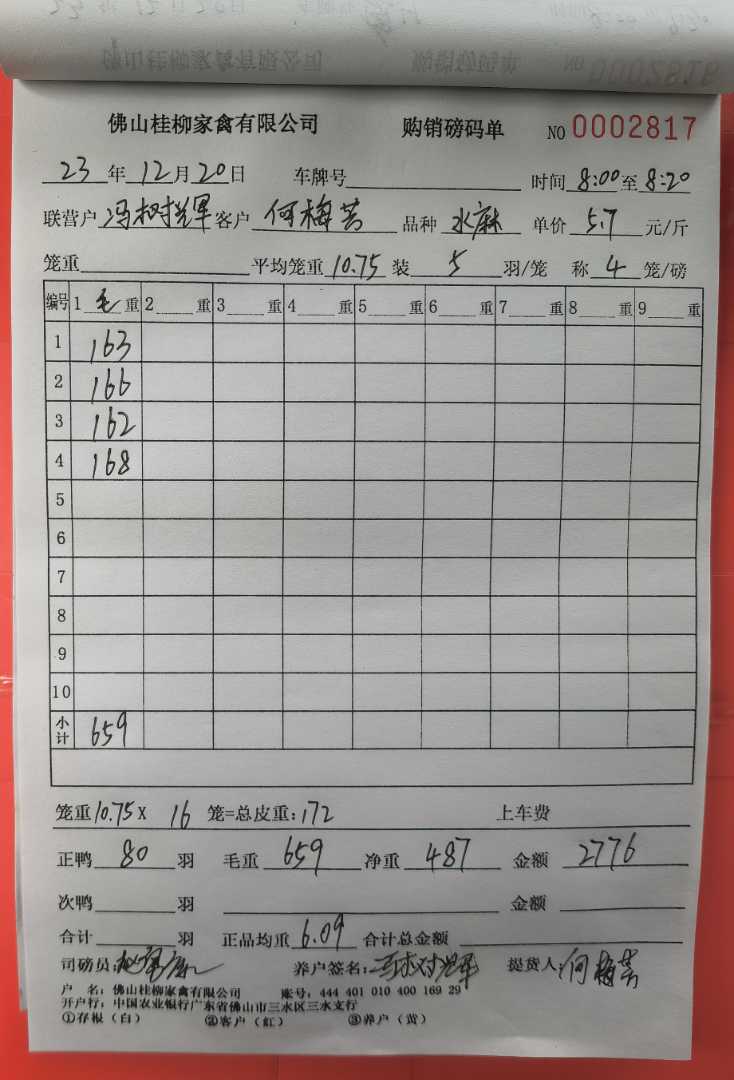 佛山桂柳家禽有限公司 购销磅码单 NO 0002817
23年12月20日 车牌号 时间 8:00至8:20
联营户 冯树兴军 客户 何梅芸 品种 水麻 单价 5.7 元/斤
笼重 平均笼重 10.75 装 5 羽/笼 称 4 笼/磅
编号 1 毛 重 2 重 3 重 4 重 5 重 6 重 7 重 8 重 9 重
1 163
2 166
3 162
4 168
5
6
7
8
9
10
小计 659
笼重10.75X 16 笼=总皮重:172 上车费
正鸭 80 羽 毛重 659 净重 487 金额 2776
次鸭 羽 金额
合计 羽 正品均重 6.09 合计总金额
司磅员: 养户签名: 提货人:何梅芸
户 名: 佛山桂柳家禽有限公司 账号: 444 401 010 400 169 29
开户行: 中国农业银行广东省佛山市三水区三水支行
①存根(白) ②客户(红) ③养户(黄)